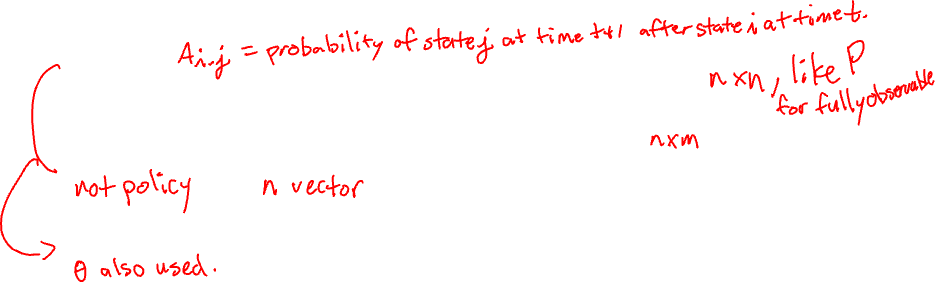 Ai,j = probability of state j at time t+1 after state i at time t.
n×n, like P
for fully observable
n×m
not policy n vector
θ also used.